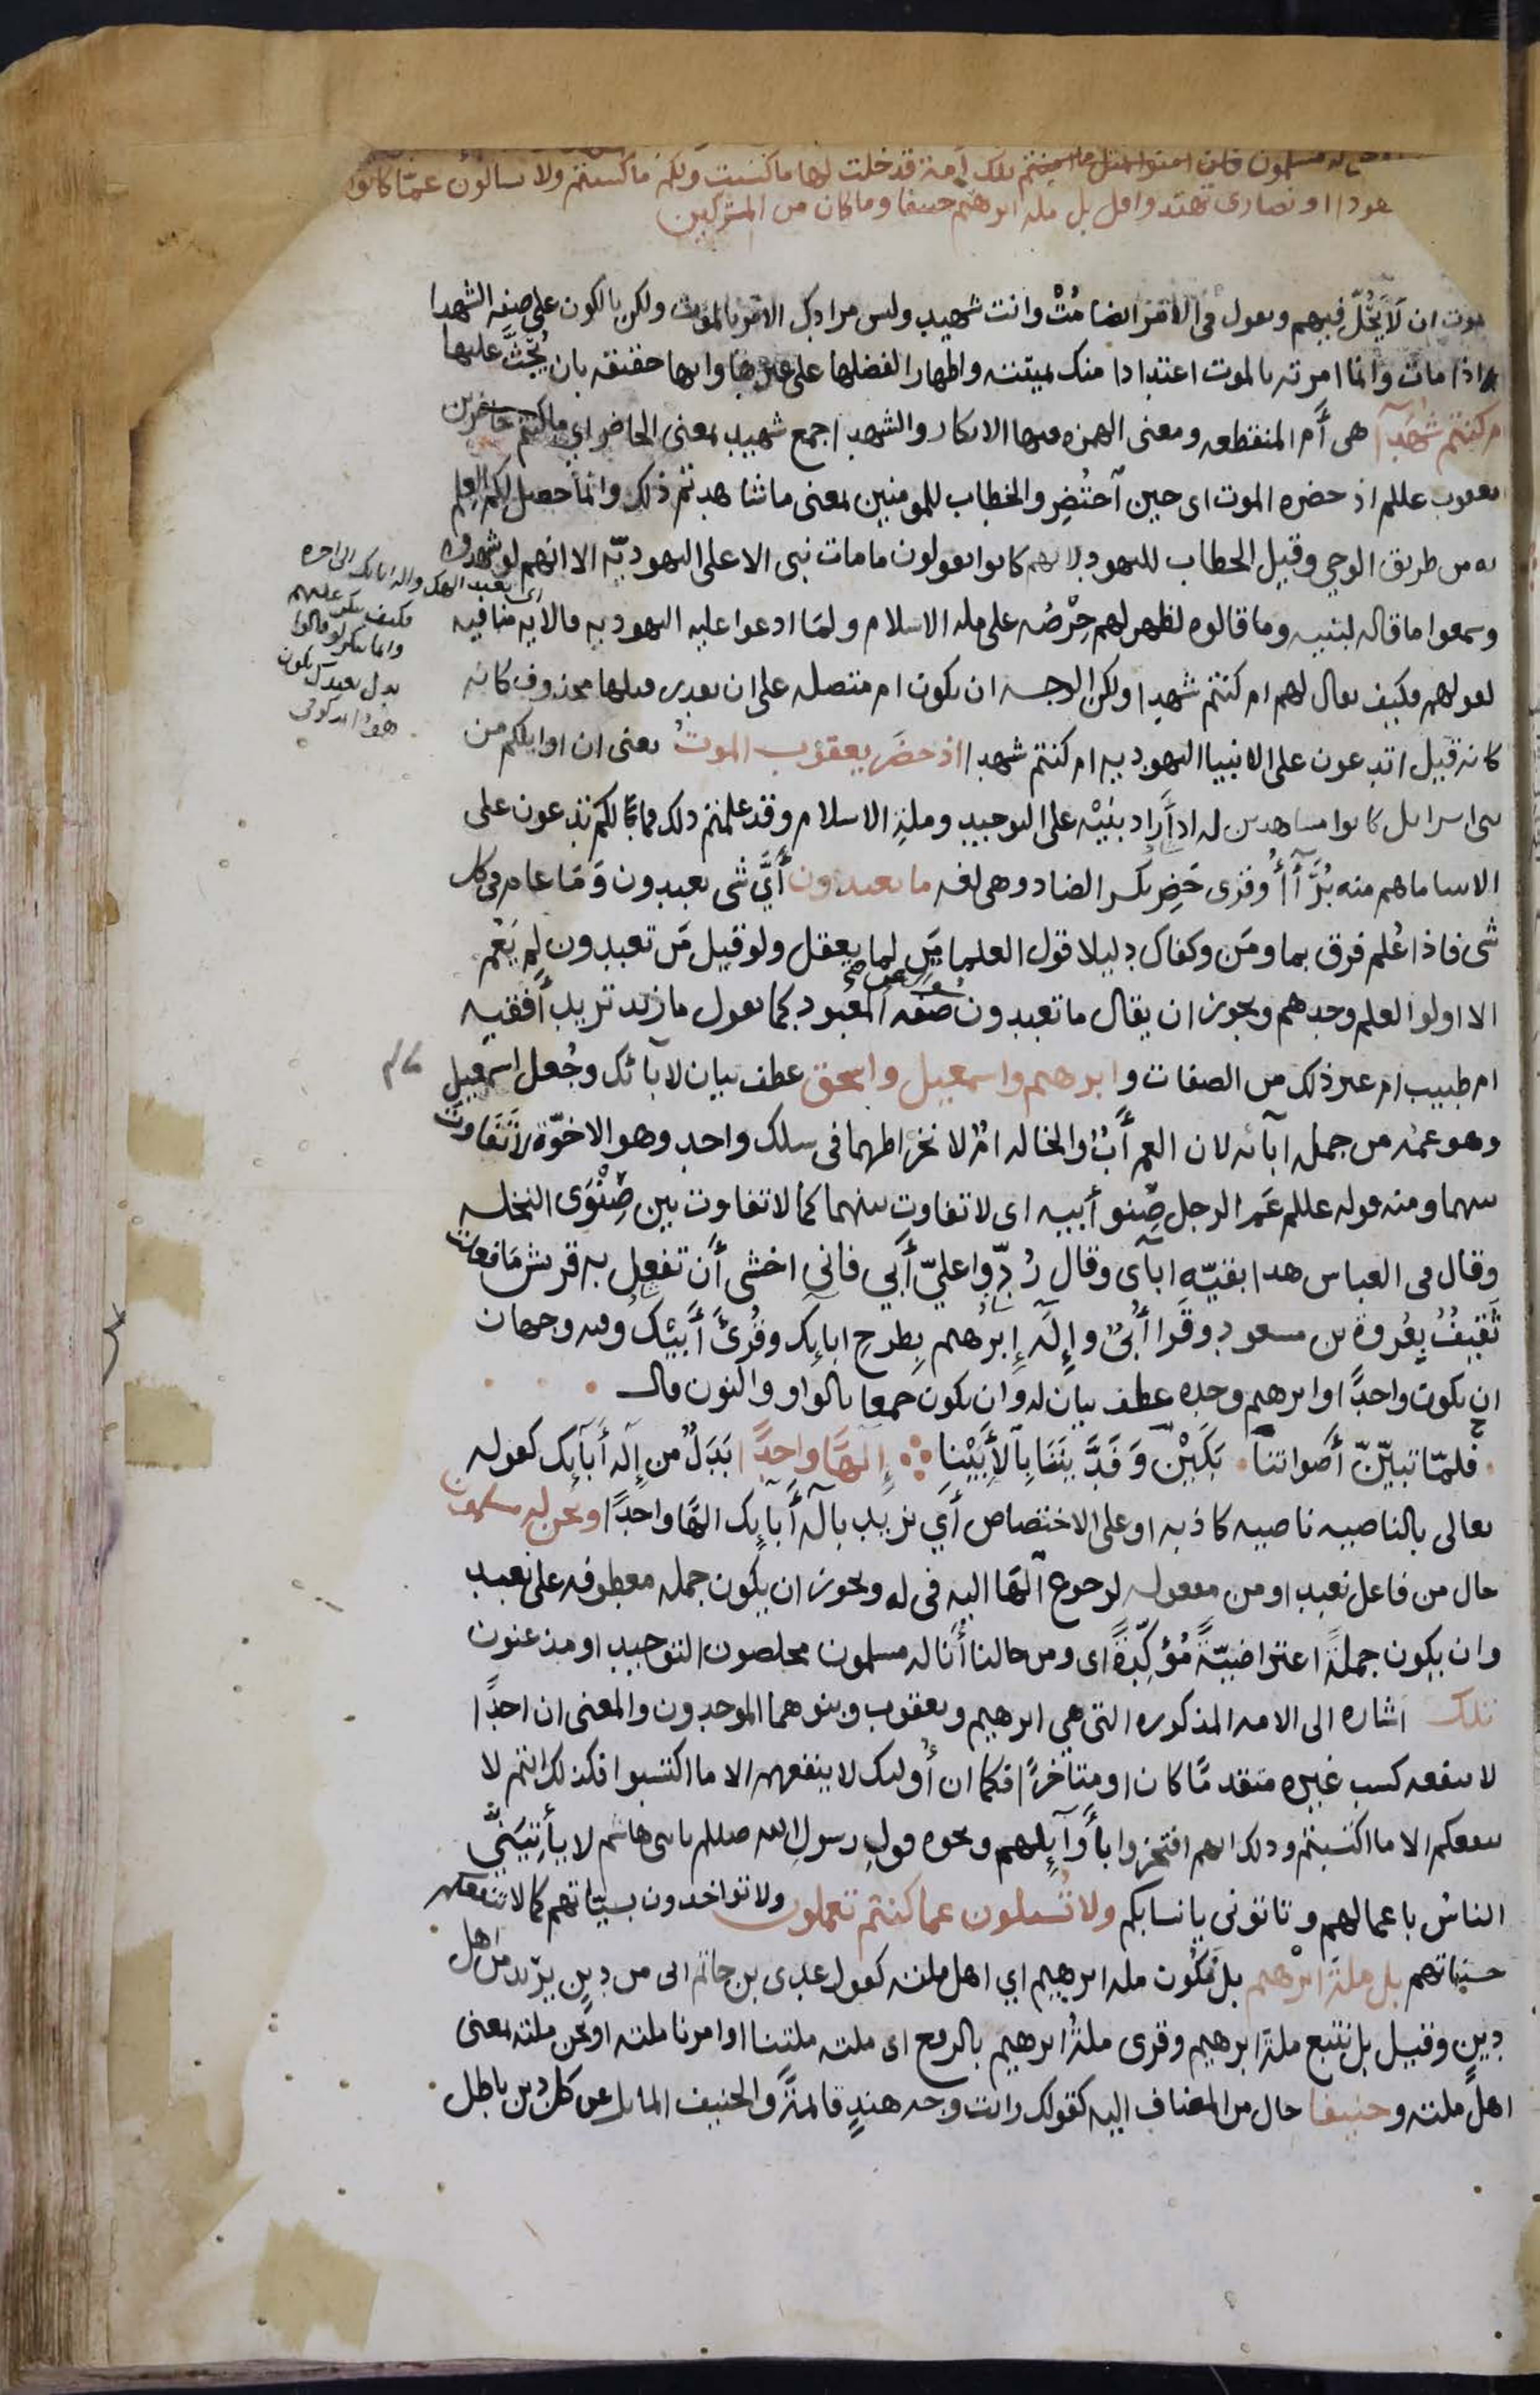 له مسلمون تلك أمة قد خلت لها ما كسبت ولكم ما كسبتم ولا تسالون عما كانوا
هودا او نصارى تهتدوا قل بل مله ابرهيم حنيفا وما كان من المشركين
موت ان لا يَحُلّ فيهم وتعول في الامر ايضا مُتْ وانت شهيد وليس مرادك الامر بالموت ولكن بالكون على صفه الشهدا
اذا مات وانما امرته بالموت اعتدادا منك بميتته واظهارا لفضلها على غيرها وانها حقيقه بان يُحَثَّ عليها
ام كنتم شهدآ هى أَم المنقطعه ومعنى الهمزه فيها الانكار والشهدا جمع شهيد بمعنى الحاضر اى ما كنتم حاضرين
يعقوب عللم اذ حضره الموت اى حين آحتُضِر والخطاب للمومنين بمعنى ما شاهدتم ذلك وانما حصل لكم العلم
به من طريق الوحي وقيل الخطاب لليهود لانهم كانوا يعولون ما مات نبى الا على اليهوديّه الا انهم لو شهدوه
وسمعوا ما قاله لبنيه وما قالوه لظهر لهم حِرْصُه على مله الاسلام ولمّا ادعوا عليه اليهوديه فالايه منافيه
لعولهم فكيف يعال لهم ام كنتم شهدا ولكن الوجه ان يكون ام متصله على ان يعدر قبلها محذوف كانه
كانه قيل اتدعون على الانبيا اليهوديه ام كنتم شهدا اذ حضَر يعقوب الموتُ يعنى ان اوايلكم من
بنى اسرايل كانوا مشاهدين له اذ أَراد بنيْه على التوحيد وملةِ الاسلام وقد علمتم ذلك فما لكم تدعون على
الانبيا ما هم منه بُرَآءُ وقرى حَضِرَ بكسر الضاد وهى لغه ما تعبدون أَيَّ شى تعبدون وَمَا عام فى كل
شى فاذا عُلم فرق بما ومَن وكفاك دليلا قول العلما مَن لما يعقل ولو قيل مَن تعبدون لم يَعُم
الا اولوا العلم وحدهم ويجوز ان يقال ما تعبدون صفه المعبود كما تعول ما زيد تريد أَفقيه
ام طبيب ام غير ذلك من الصفات وابرهيم واسمعيل واسحق عطف بيان لآبائك وجُعل اسمعيل
وهو عمُّه من جمله آبائه لان العم أَبٌ والخاله امّ لانخراطهما فى سلك واحد وهو الاخوّة لا تَفَاوتَ
بينهما ومنه قوله عللم عَم الرجل صِنو أبيه اى لا تفاوت بينهما كما لا تفاوت بين صِنْوَى النخله
وقال فى العباس هذا بقيّه ابآى وقال رُدّوا عليّ أَبي فانى اخشى أَن تفعل به قريش مَا فعلت
ثَقيفُ بِعُروة بن مسعود وقَرا أُبَيّ وإِلَه إِبرٰهيم بِطرح ابايِك وقُرئَ أَبيك وفيه وجهان
ان يكون واحدًا وابرهيم وحده عطف بيان له وان يكون جمعا بالواو والنون قال
فلمّا تبيّنّ أَصواتنا بَكَيْن وَفَدَّينَنَا بِآلأَبِيْنا إِلهًا واحدًا بَدَلٌ من إِله أَبآئِك كعوله
تعالى بالناصيه ناصيه كاذبه او على الاختصاص أَي نريد بإلٰه أَبآئِك الهًا واحدًا ونحن له مسلمون
حال من فاعل نعبد او من مفعوله لرجوع آلها اليه فى له ويجوز ان يكون جمله معطوفه على نعبد
وان يكون جملةً اعتراضيّةً مُؤَكِّدةً اى ومن حالنا أَنا له مسلمون مخلصون التوحيد او مذعنون
تلك اشاره الى الامه المذكوره التى هى ابرهيم ويعقوب وبنوهما الموحدون والمعنى ان احدًا
لا ينفعه كسب غيره متقدمًا كان او متأخرًا فكما ان أُوليك لا ينفعهم الا ما اكتسبوا فكذلك انتم لا
ينفعكم الا ما اكتسبتم وذلك انهم افتخروا بأَوآئلهم ونحوه قول رسولِ الله صللم يابنى هاشم لا يأتِيَنِّى
الناسُ باعمالهم وتاتونى بانسابكم ولا تُسئلون عما كنتم تعملون ولا تواخذون بسيّاتهم كما لا تنفعكم
حسناتهم بل ملةَ ابرْهيم بل نَكُون مله ابرهيم اي اهل ملته كعول عدى بن حاتم انى من دين يريد من اهل
دين وقيل بل نتبع ملةَ ابرهيم وقرى ملةُ ابرهيم بالرفع اى ملته ملتنا او امرنا ملته او نحن ملته بمعنى
اهل ملته وحنيفا حال من المضاف اليه كقولك رايت وجه هندٍ قائمةً والحنيف المايل عن كل دين باطل